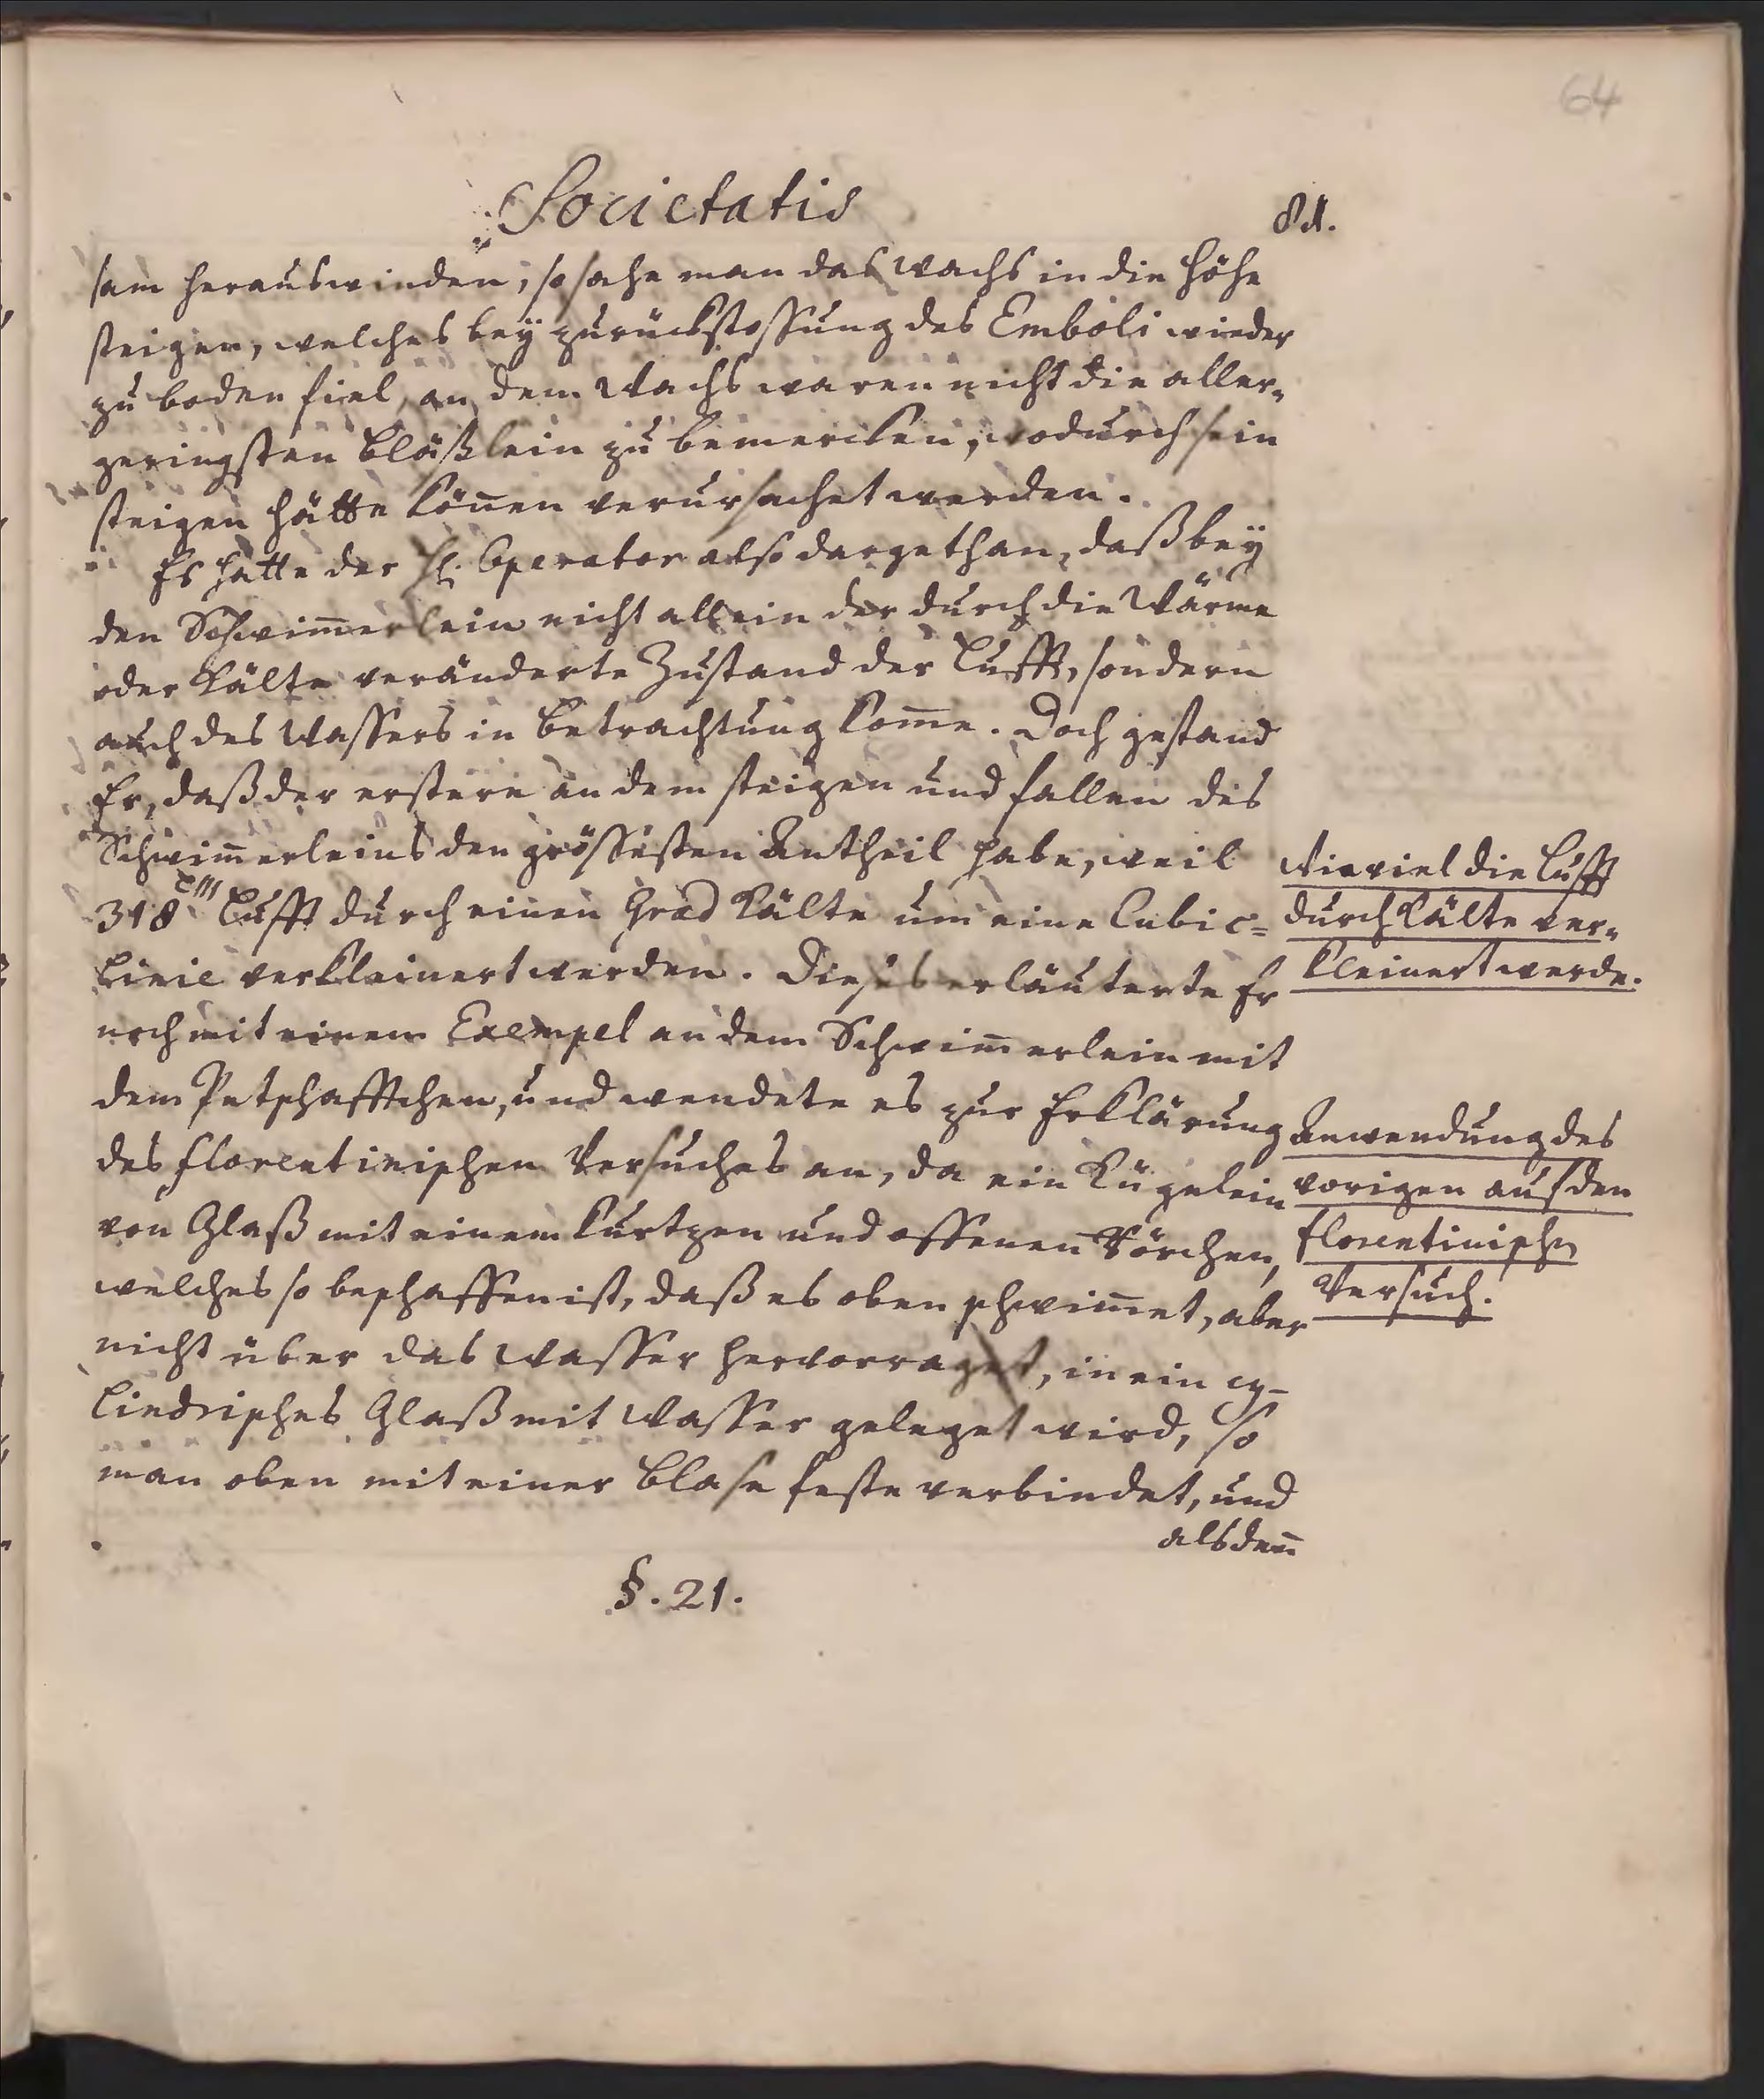 64
Societatis
81.
sam herauswinden, so sahe man das Wachs in die Höhe
steigen, welches bey zurückstossung des Emboli wieder
zu boden fiel, an dem Wachs waren nicht die aller„
geringsten Bläßlein zu bemercken, wodurch sein
steigen hätte können verursachet werden.
Es hatte der H. Operator also dargethan, daß bey
den Schwim̄erlein nicht allein der durch die Wärme
oder Kälte veränderte Zustand der Lufft, sondern
auch des Wassers in betrachtung kom̄e. Doch gestand
Er, daß der erstere an dem steigen und fallen des
Schwim̄erleins den grössesten Antheil habe, weil
318 c''' Lufft durch einen Grad Kälte um eine Cubic=
Linie verkleinert werden. Dieses erläuterte Er
noch mit einem Exempel an dem Schwim̄erlein mit
dem Petschafftchen, und wendete es zur Erklärung
des florentinischen Versuches an, da ein Kügelein
von Glaß mit einem kurtzen und offenen Rörchen,
welches so beschaffen ist, daß es oben schwim̄et, aber
nicht über das Wasser hervorraget, in ein cy-
lindrisches Glaß mit Wasser geleget wird, so
man oben mit einer Blase feste verbindet, und
alsden̄
§. 21.
Wieviel die Lufft
durch Kälte ver„
kleinert werde.
Anwendung des
vorigen auf den
florentinischn
Versuch.